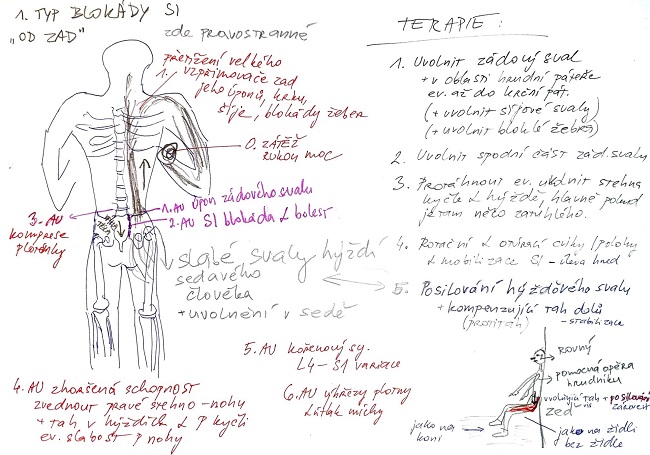 1. TYP BLOKÁDY SI
"OD ZAD"
zde pravostranné
přetížení velkého
1. vzpřimovače zad
jeho úponů, krku,
šíje, blokády žeber
0. ZÁTĚŽ
RUKOU MOC
1. AU úpon zádového svalu
2. AU SI blokáda & bolest
3. AU
komprese
ploténky
slabé svaly hýždí
sedavého
člověka
+ uvolnění v sedě
5. AU kořenový sy.
L4-S1 variace
4. AU zhoršená schopnost
zvednout pravé stehno-nohy
+ tah v hýždích & P kyčli
ev. slabost P nohy
6. AU výhřezy plotny
& útlak míchy
TERAPIE:
1. Uvolnit zádový sval
+ v oblasti hrudní páteře
ev. až do krční pát.
(+ uvolnit šíjové svaly)
(+ uvolnit bloklé žebra)
2. Uvolnit spodní část zád. svalu
3. Protáhnout ev. uvolnit stehna
kyčle & hýždě, hlavně pokud
je tam něco zatuhlého.
4. Rotační & otvírací cviky / polohy
& mobilizace SI - úleva hned
5. Posilování hýžďového svalu
+ kompenzující tah dolů
(protitah) - stabilizace
rovný
pomocná opěra
hrudníku
uvolňující tah + posilování
zeď
jako na
koni
jako na
židli
bez židle